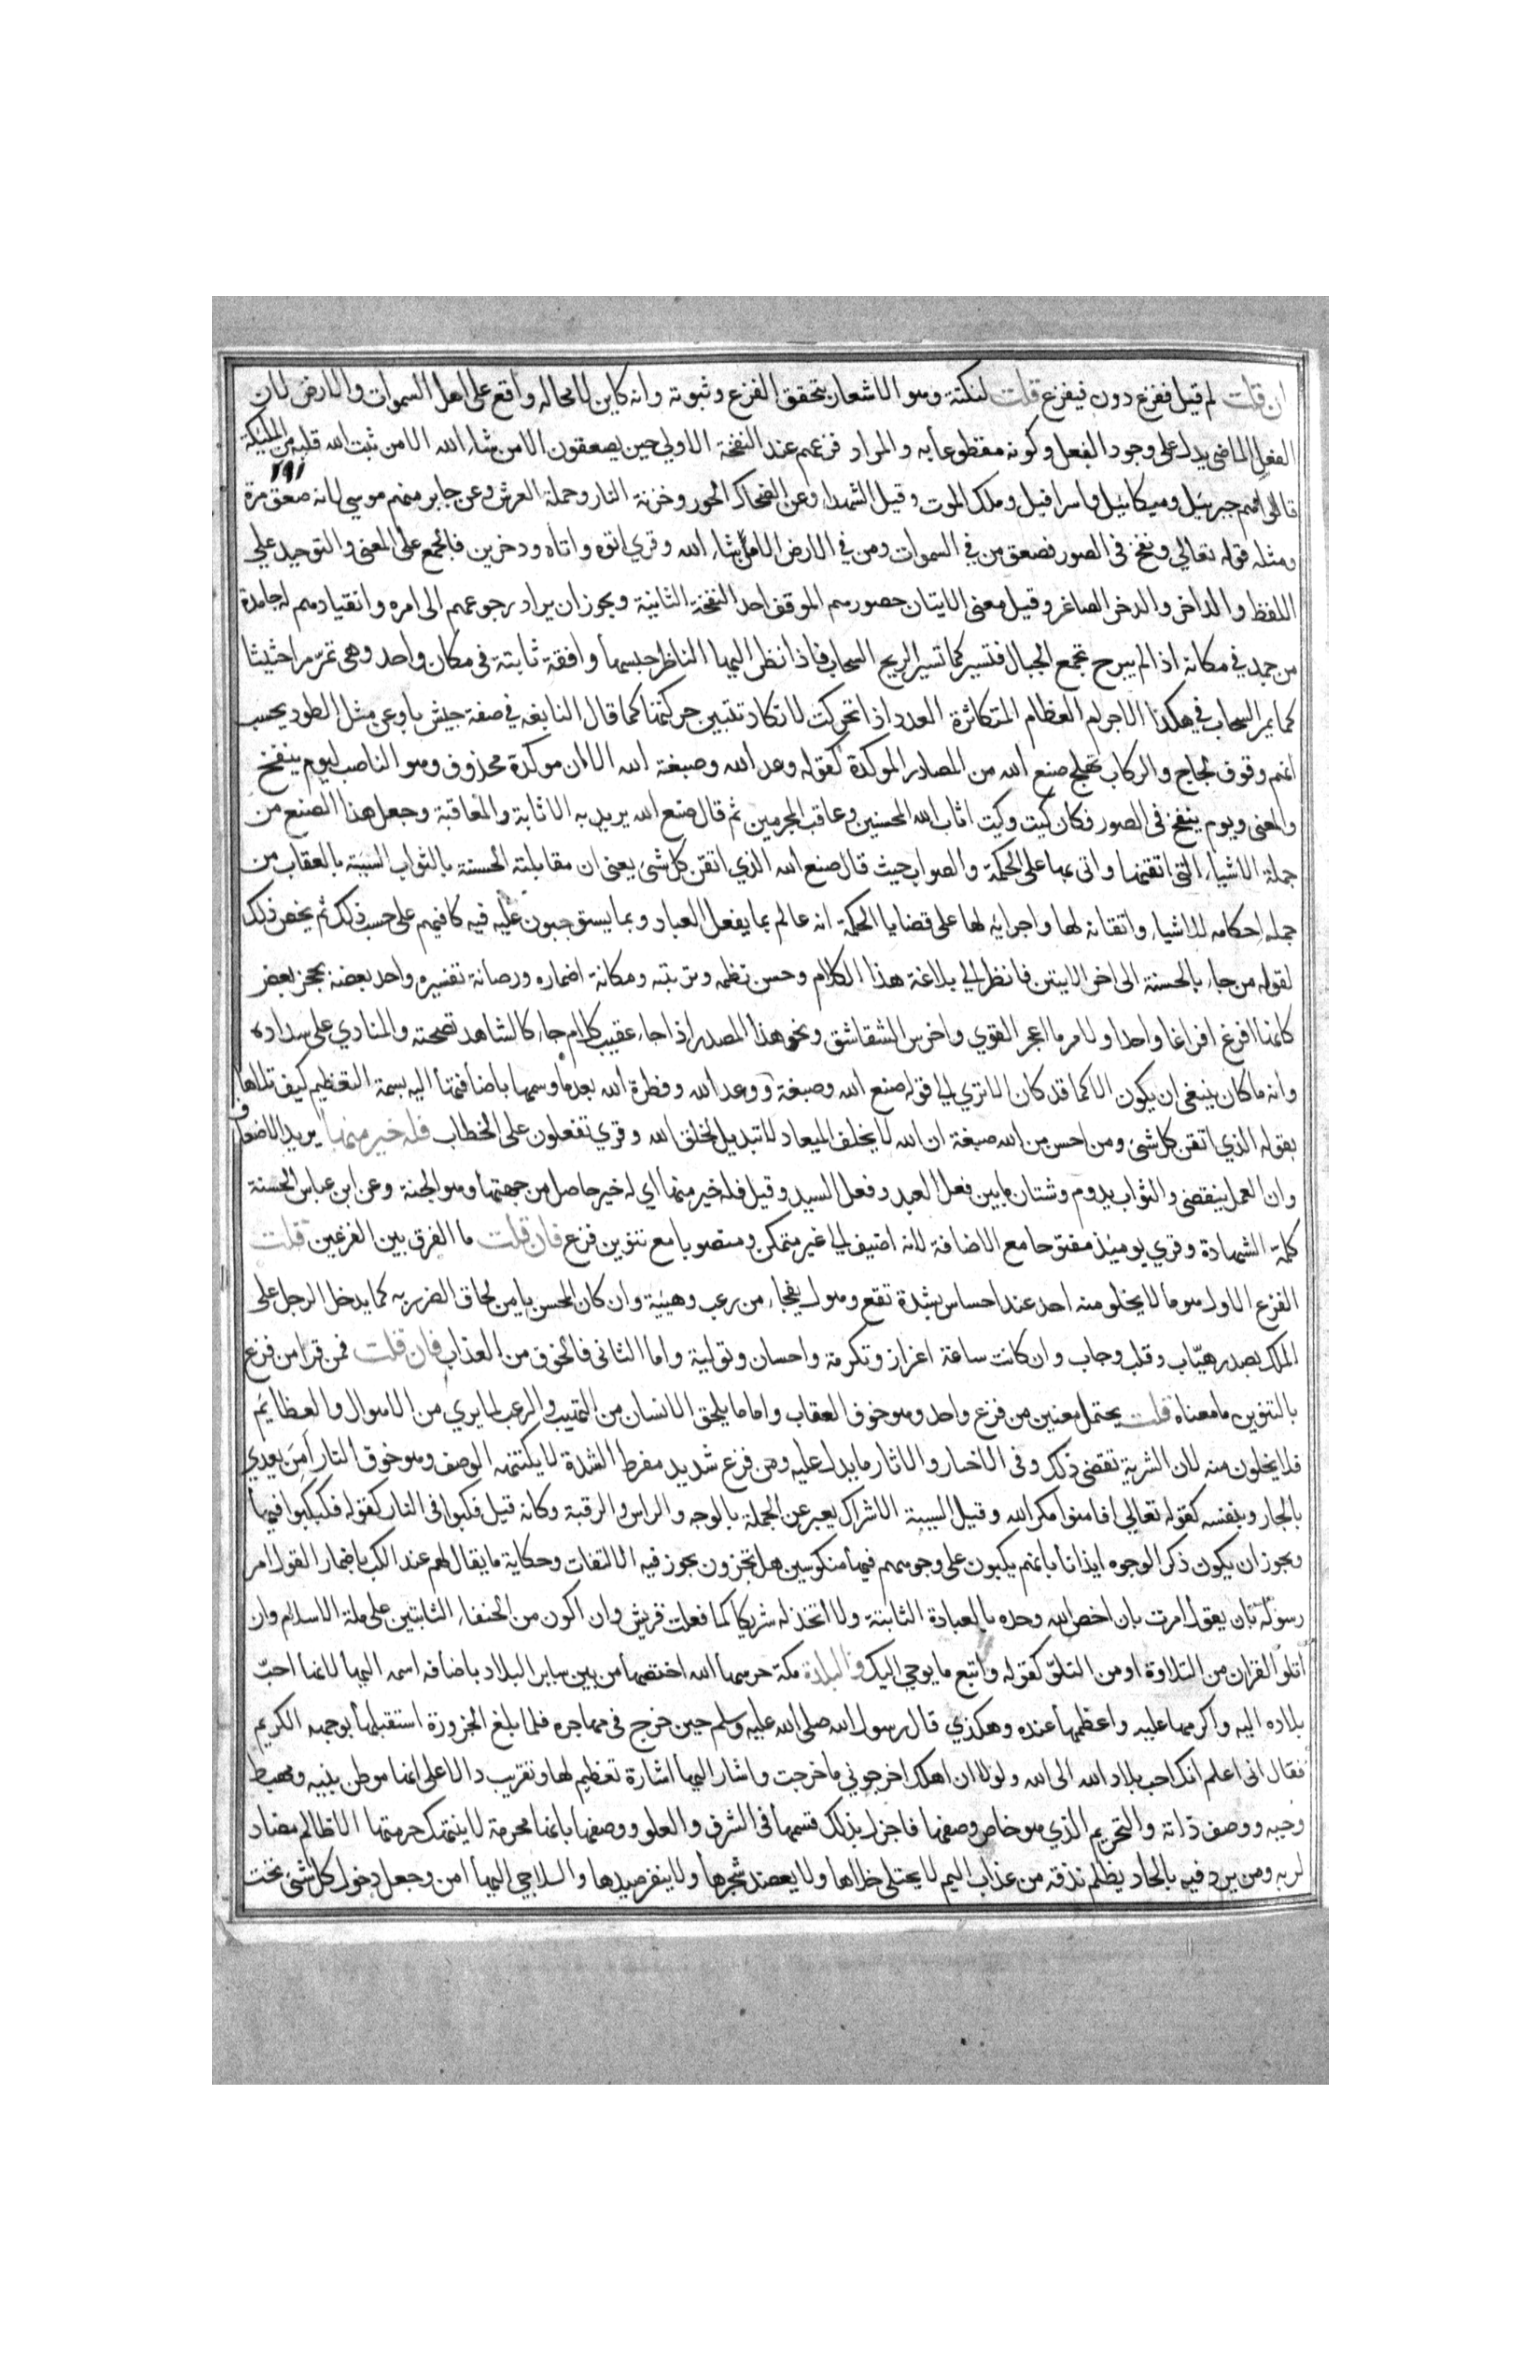 ان قلت لم قيل ففزع دون فيفزع قلت لنكتة وهو الاشعار بتحقق الفزع وثبوته وانه كاين لا محاله واقع على اهل السموات والارض لان
الفعل الماضى يدل على وجود الفعل وكونه مقطوعا به والمراد فزعهم عند النفخة الاولي حين يصعقون الا من شاء الله الا من ثبت الله قلبه من الملئكة
١٩١
قالوا هم جبرئيل وميكائيل واسرافيل وملك الموت وقيل الشهداء وعن الضحاك الحور وخزنة النار وحملة العرش وعن جابر منهم موسي لانه صعق مرة
ومثله قوله تعالي ونفخ فى الصور فصعق من في السموات ومن في الارض الا من شاء الله وقري اتوه واتاه ودخرين فالجمع على المعنى والتوحيد علي
اللفظ والداخر والدخر الصاغر وقيل معنى الاتيان حضورهم الموقف احد النفخة الثانية ويجوز ان يراد رجوعهم الى امره وانقيادهم له جامدة
من جمد في مكانه اذا لم يبرح تجمع الجبال فتسير كما تسير الريح السحاب فاذا نظر اليها الناظر حسبها واقفة ثابتة فى مكان واحد وهى تمر مرا حثيثا
كما يمر السحاب في هكذا الاجرام العظام المتكاثرة العدد اذا تحركت لا تكاد تتبين حركتها كما قال النابغه في صفة جيش باوعن مثل الطود يحسب
انهم وقوف لحاج والركاب تهملج صنع الله من المصادر الموكدة كقوله وعد الله وصبغة الله الا ان موكدة محذوف وهو الناصب ليوم ينفخ
والمعنى ويوم ينفخ فى الصور فكان كيت وكيت اثاب الله المحسنين وعاقب المجرمين ثم قال صنع الله يريد به الاثابة والمعاقبة وجعل هذا الصنع من
جملة الاشياء التى اتقنها واتى بها على الحكمة والصواب حيث قال صنع الله الذي اتقن كل شئ يعنى ان مقابلته الحسنة بالثواب السيئة بالعقاب من
جملة احكامه للاشياء واتقانه لها واجرايه لها على قضايا الحكمة انه عالم بما يفعل العباد وبما يستوجبون عليه فيه كافيهم على حسب ذلك ثم يخص ذلك
لقوله من جاء بالحسنة الى اخر الايتين فانظر الي بلاغة هذا الكلام وحسن نظمه وترتيبه ومكانة اضماره ورصانة تفسيره واخد بعضه بحجز بعض
كانما افرغ افراغا واحدا ولامر ما اعجز القوي واخرس الشقاشق ونحو هذا المصدر اذا جاء عقيب كلام جاء كالشاهد بصحته والمنادي على سداده
وانه ما كان ينبغى ان يكون الا كما قد كان الا تري الي قوله صنع الله وصبغة ووعد الله وفطرة الله بعد ما وسمها باضافتها اليه بسمة التعظيم كيف تلاها
بقوله الذي اتقن كل شئ ومن احسن من الله صبغة ان الله لا يخلف الميعاد لا تبديل لخلق الله وقري تفعلون على الخطاب فله خير منها يريد الاضعاف
وان العمل ينقضى والثواب يدوم وشتان ما بين فعل العبد وفعل السيد وقيل فله خير منها اي له خير حاصل من جهتها وهو الجنة وعن ابن عباس الحسنة
كلمة الشهادة وقري يوميذ مفتوحا مع الاضافة لانه اضيف الي غير متمكن ومنصوبا مع تنوين فزع فان قلت ما الفرق بين الفزعين قلت
الفزع الاول هو ما لا يخلو منه احد عند احساس بشدة تقع وهول يفجاء من رعب وهيئة وان كان المحسن يامن لحاق الضرر به كما يدخل الرجل على
الملك بصدر هيّاب وقلب وجاب وان كانت ساعة اعزاز وتكرمة واحسان وتولية واما الثانى فالخوف من العذاب فان قلت فمن قرا من فزع
بالتنوين ما معناه قلت يحتمل معنيين من فزع واحد وهو خوف العقاب واما ما يلحق الانسان من التهيب والرعب لما يري من الاهوال والعظايم
فلا يخلون منه لان البشرية تقضى ذلك وفى الاخبار والاثار ما يدل عليه ومن فزع شديد مفرط الشدة لا يكتنهه الوصف وهو خوف النار امن يعدي
بالجار وبنفسه كقوله تعالي افامنوا مكر الله وقيل السيئة الاشراك يعبر عن الجملة بالوجه والراس والرقبة وكانه قيل فكبوا فى النار كقوله فكبكبوا فيها
ويجوز ان يكون ذكر الوجوه ايذانا بانهم يكبون على وجوههم فيها منكوسين هل تجزون يجوز فيه الالتفات وحكاية ما يقال لهم عند الكب باضمار القول امر
رسوله بان يقول امرت بان اخص الله وحده بالعبادة الثابتة ولا اتخذ له شريكا كما فعلت قريش وان اكون من الحنفاء الثابتين على ملة الاسلام وان
اتلو القران من التلاوة او من التلوّ كقوله واتبع ما يوحي اليك والبلدة مكة حرسها الله اختصها من بين ساير البلاد باضافه اسمه اليها لانها احبّ
بلاده اليه واكرمها عليه واعظمها عنده وهكذي قال رسول الله صلى الله عليه وسلم حين خرج فى مهاجره فلما بلغ الجزورة استقبلها بوجهه الكريم
فقال انى اعلم انك احب بلاد الله الى الله ولولا ان اهلك اخرجوني ما خرجت واشار اليها اشارة تعظيم لها وتقريب دالا على انها موطن بنيه ومهبط
وحيه ووصف ذاته والتحريم الذي هو خاص وصفها فاجزل بذلك قسمها فى الشرف والعلو ووصفها بانها محرمة لا ينتهك حرمتها الا ظالم مضاد
لربه ومن يرد فيه بالحاد بظلم نذقه من عذاب اليم لا يختلى خلاها ولا يعضد شجرها ولا ينفر صيدها واللاجي اليها امن وجعل دخول كل شئ تحت